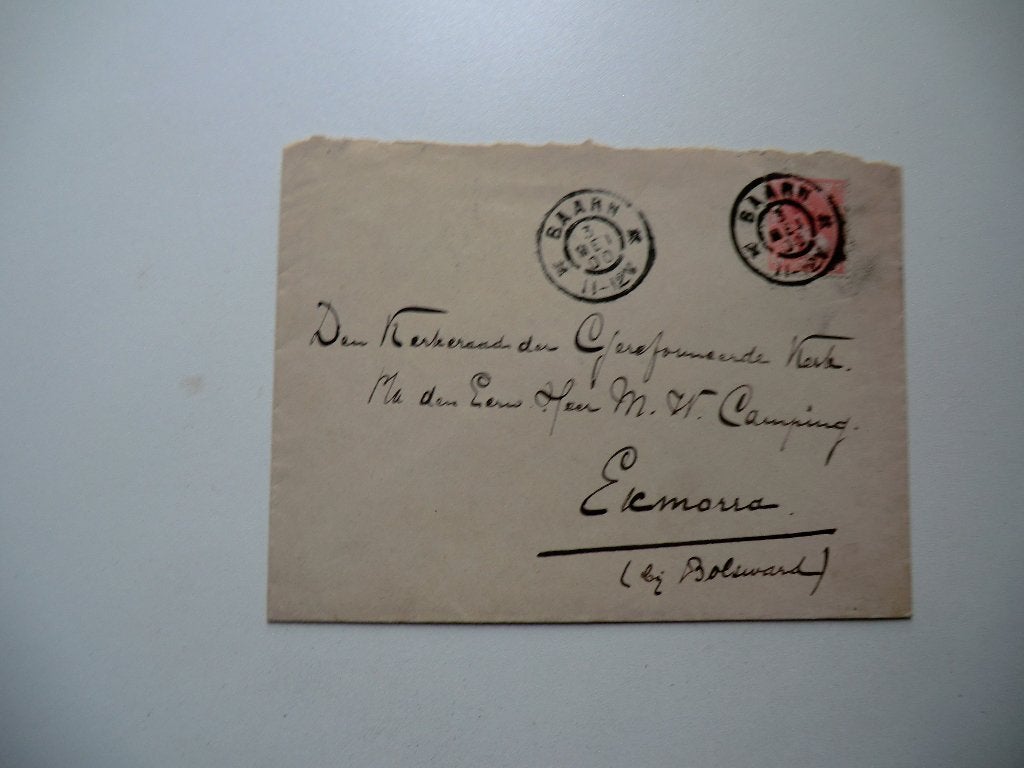 BAARN
11-12V
BAARN
11-12V
Den Kerkeraad der Gereformeerde Kerk.
den Eerw. Heer M. W. Camping.
Exmorra.
(bij Bolsward)